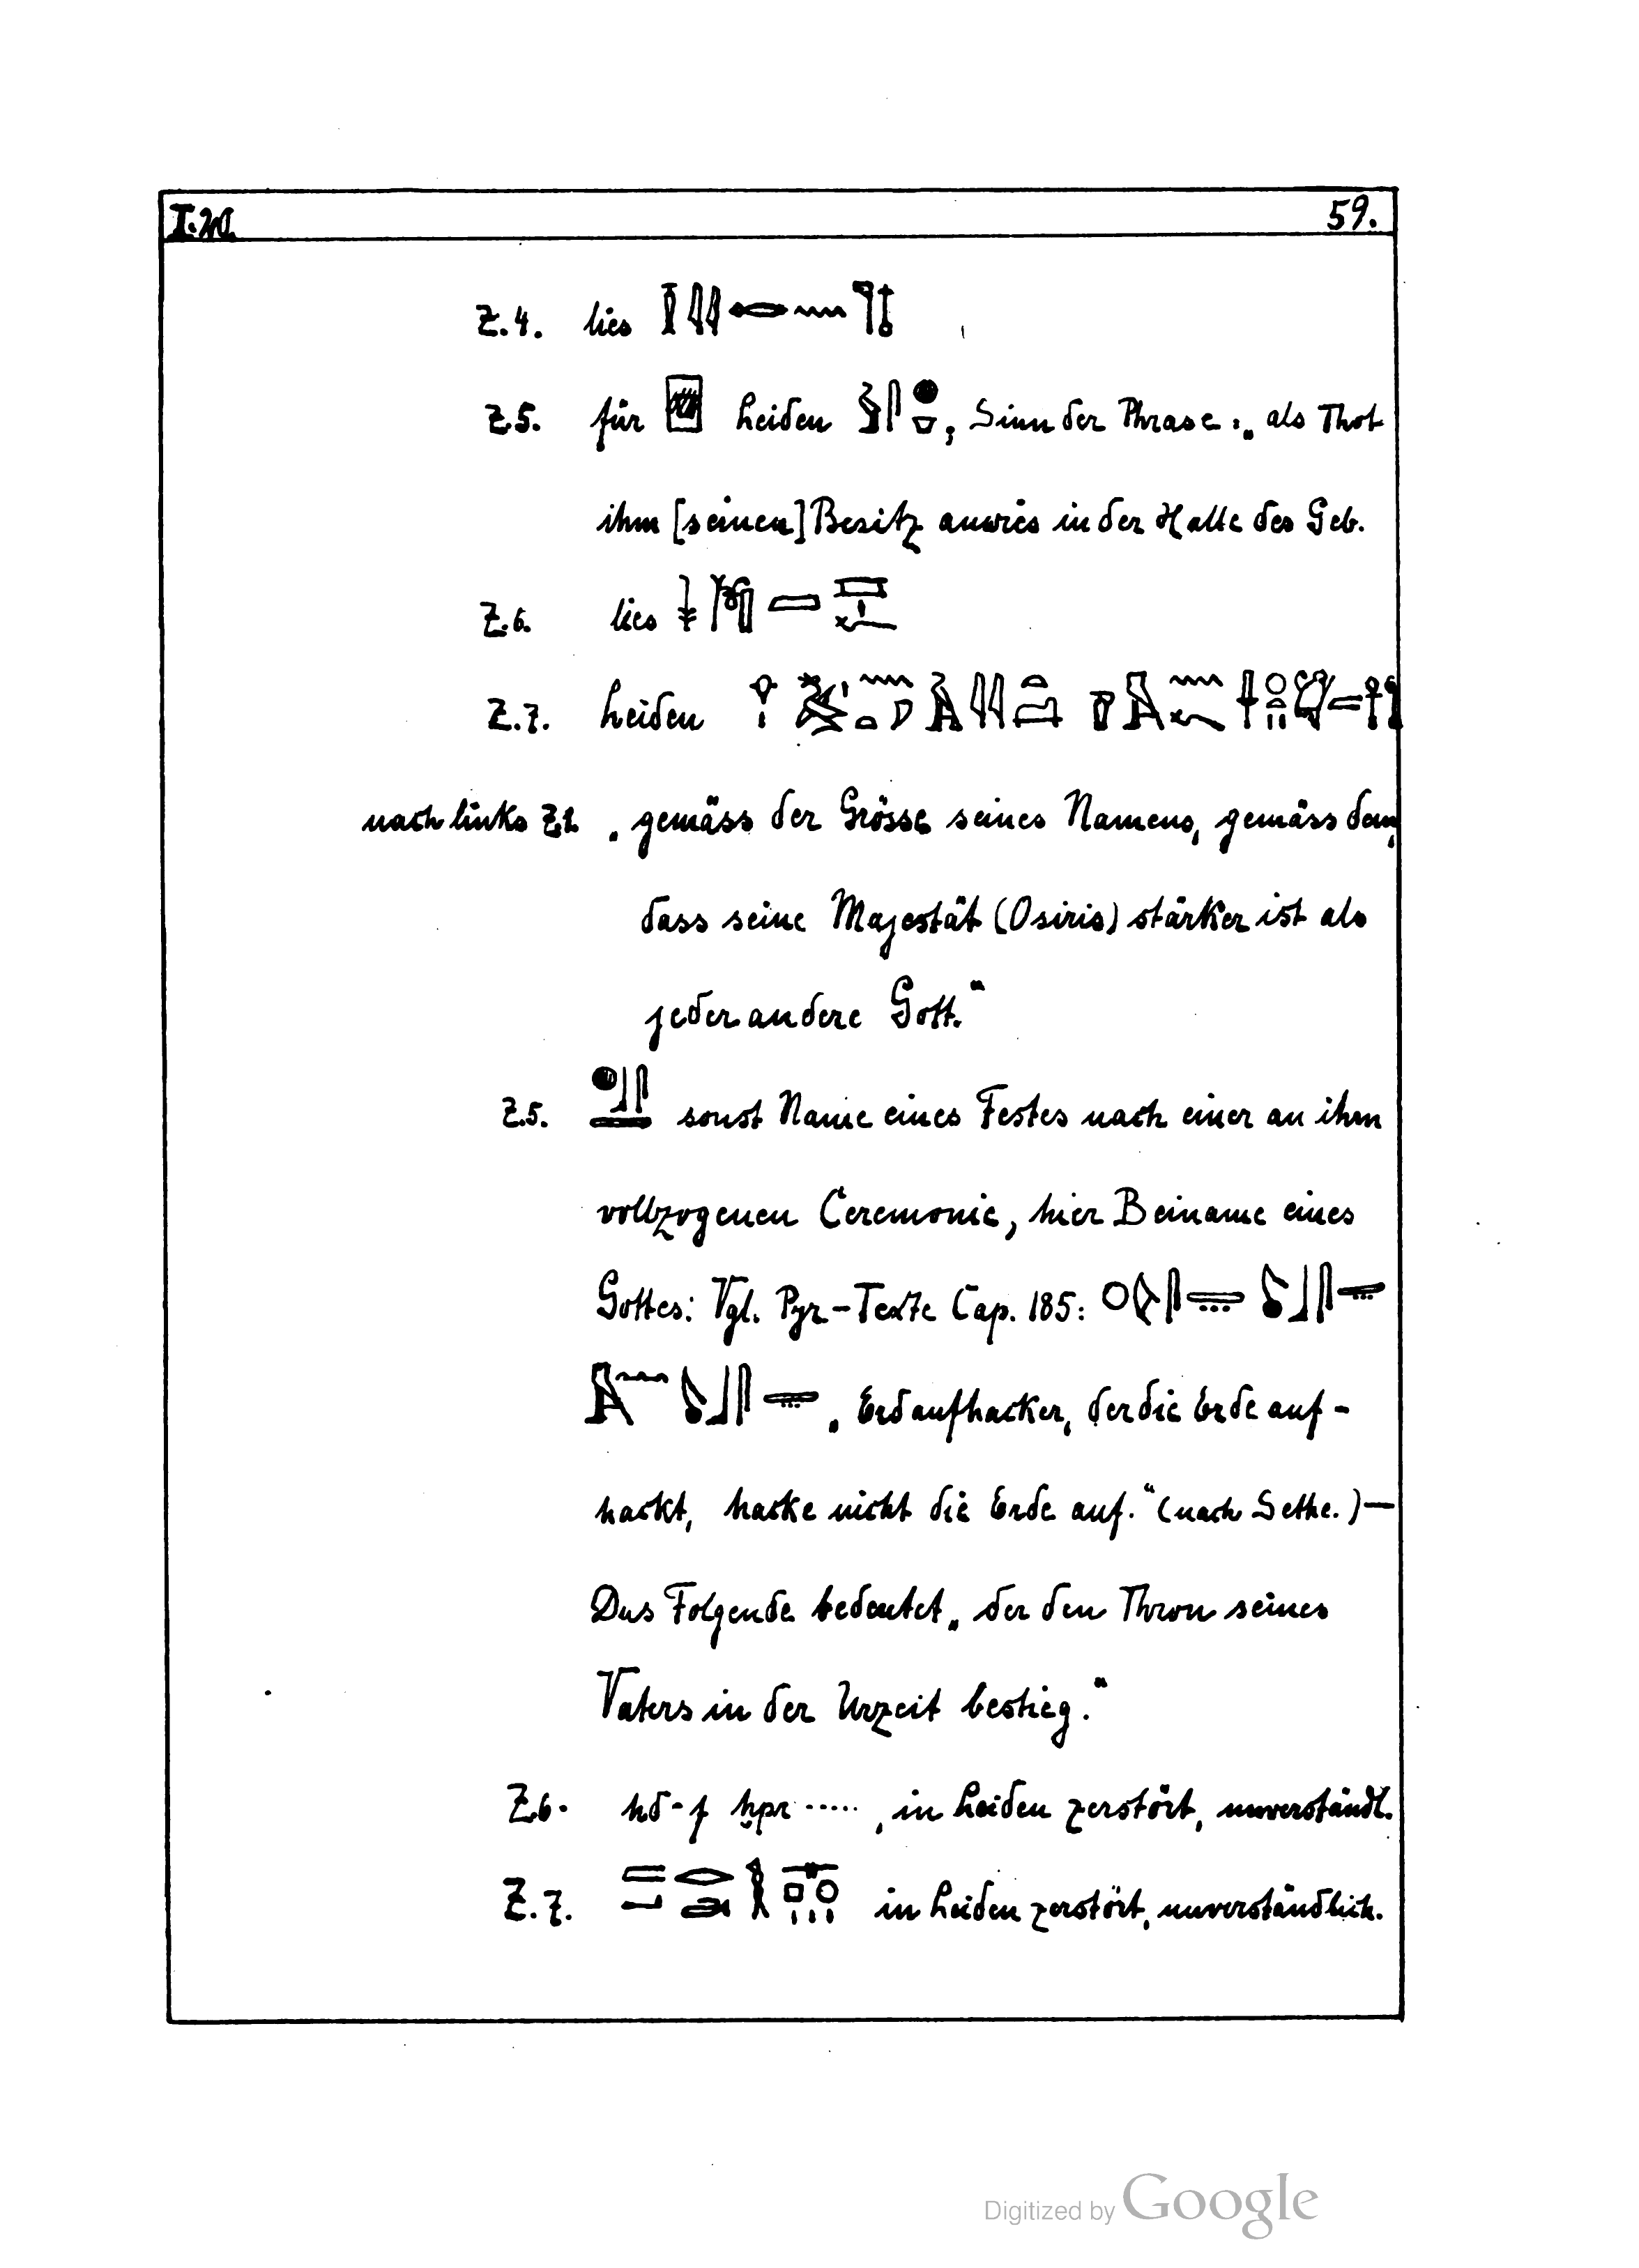 I. 59.
Z.4. lies
Z.5. für Leiden , Sinn der Phrase: „als Thot
ihm [seinen] Besitz anwies in der Halle des Geb.
Z.6. lies
Z.7. Leiden
nach links Z.1. „gemäss der Grösse seines Namens, gemäss dem,
dass seine Majestät (Osiris) stärker ist als
jeder andere Gott.“
Z.5. sonst Name eines Festes nach einer an ihm
vollzogenen Ceremonie, hier Beiname eines
Gottes: Vgl. Pyr-Texte Cap. 185:
„Erdaufhacker, der die Erde auf-
hackt, hacke nicht die Erde auf.“ (nach Sethe.) —
Das Folgende bedeutet „der den Thron seines
Vaters in der Urzeit bestieg.“
Z.6. ḫpr ....., in Leiden zerstört, unverständl.
Z.7. in Leiden zerstört, unverständlich.
Digitized by Google